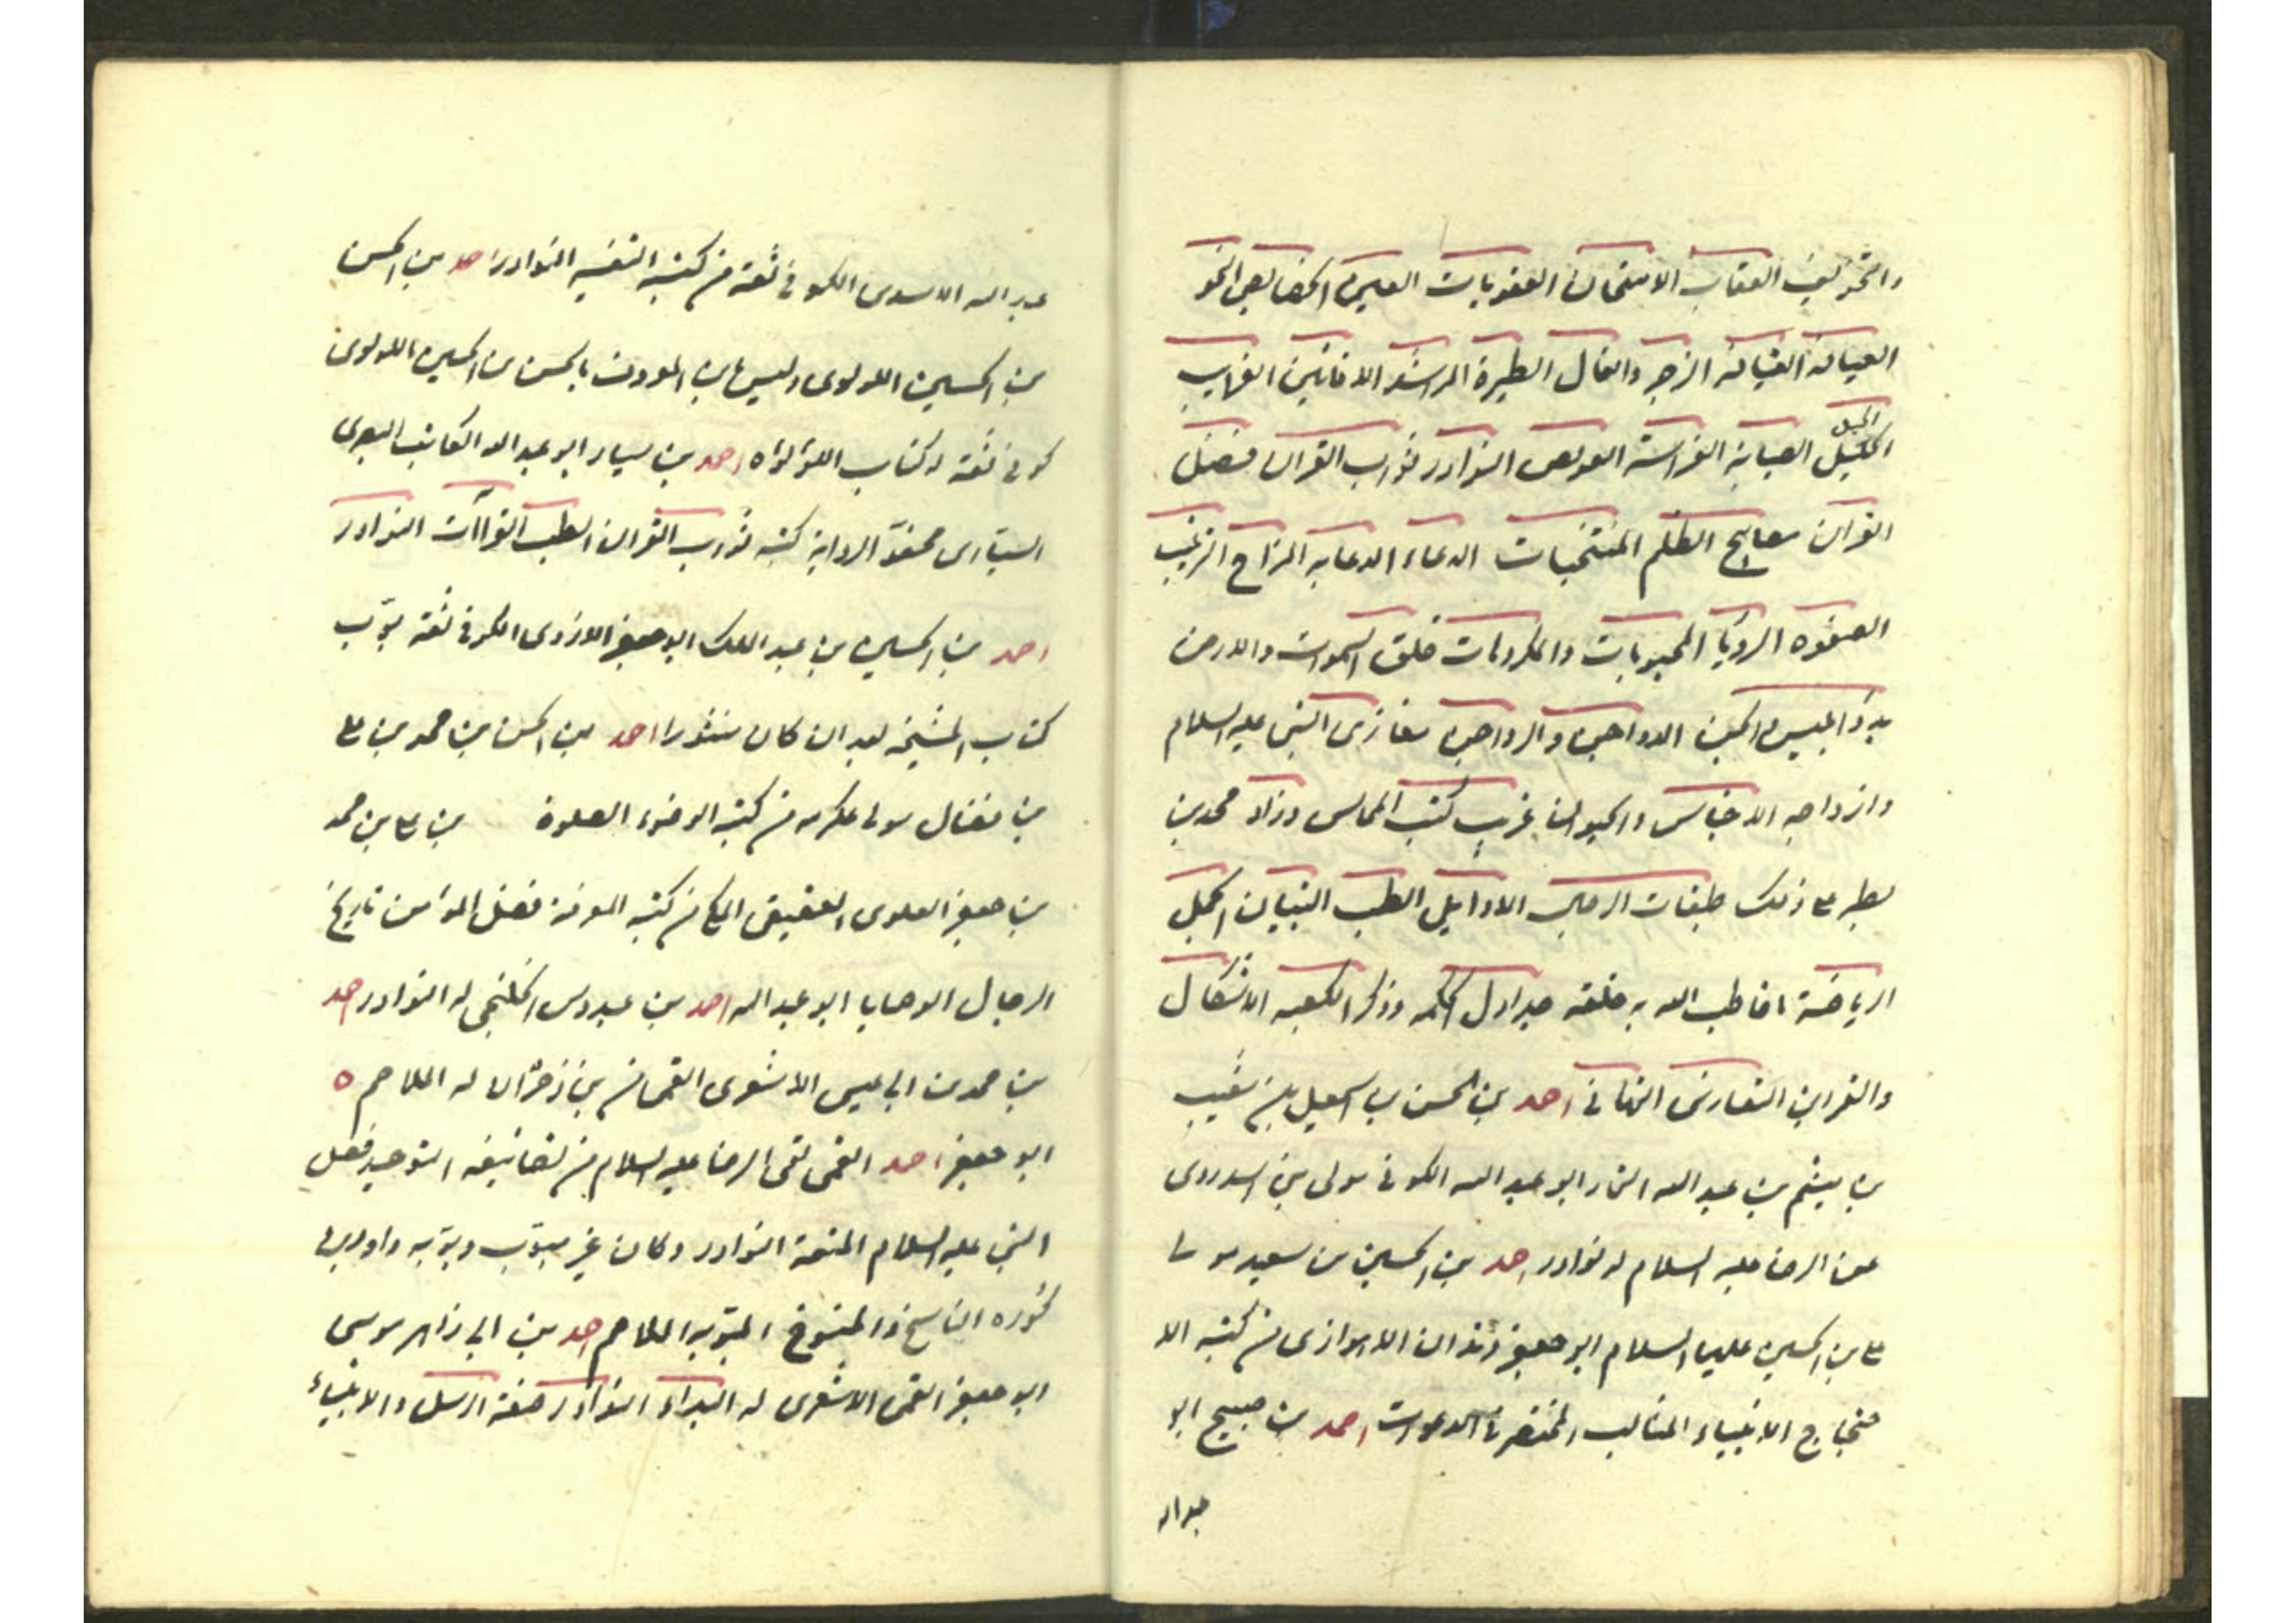 والتخويف العقاب الامتحان العقوبات العين الخصايص النحو
العيافة القيافة الزجر والفال الطيرة المراشد الافانين الغرايب
الخيل
الحيل الصيانة الفراسة العويص النوادر ثواب القران فضل
القران مصابيح الظلم المنتخبات الدعاء الدعابه المزاح الترغيب
الصفوه الرويا المحبوبات والمكروهات خلق السموات والارض
بدؤ ابليس والجن الدواجن والرواجن مغازى النبى عليه السلام
وازواجه الاجناس والحيوان غريب كتب المحاسن وزاد محمد بن
بطه على ذلك طبقات الرجال الاوايل الطب التبيان الجمل
الرياضة ما خاطب الله به خلقه جداول الحكمه وذكر الكعبه الاشكال
والقراين التعازى التهانى احمد بن الحسن بن اسمعيل بن شعيب
بن ميثم بن عبد الله التمار ابو عبد الله الكوفى مولى بنى اسد روى
عن الرضا عليه السلام له نوادر احمد بن الحسين بن سعيد مولى
على بن الحسين عليهما السلام ابو جعفر دندان الاهوازى من كتبه الا
حتجاج الانبياء المثالب المختصر فى الدعوات احمد بن صبيح ابو
عبد الله
عبد الله الاسدى الكوفى ثقة من كتبه التفسير النوادر احمد بن الحسن
بن الحسين اللولوى وليس بابن المعروف بالحسن بن الحسين اللولوى
كوفى ثقة له كتاب اللؤلؤه احمد بن سيار ابو عبد الله الكاتب البصرى
السيارى مجفوّ الرواية كتبه ثواب القران الطب القراآت النوادر
احمد بن الحسين بن عبد الملك ابو جعفر الازدى الكوفى ثقة بوّب
كتاب المشيخه بعد ان كان منثورا احمد بن الحسن بن محمد بن على
بن فضال مولى عكرمه من كتبه الوضوء الصلوة بن على بن محمد
بن جعفر العلوى العقيقى المكى من كتبه المعرفة فضل المؤمن تاريخ
الرجال الوصايا ابو عبد الله احمد بن عبدوس الخلنجى له النوادر احمد
بن محمد بن ابى عيسى الاشعرى القمى من بنى ذخران له الملاحم ه
ابو جعفر احمد القمى لقى الرضا عليه السلام من تصانيفه التوحيد فضل
النبى عليه السلام المتعة النوادر وكان غير مبوّب وبوّبه داود بن
كوره الناسخ والمنسوخ المبوّبه الملاحم احمد بن ابى زاهر موسى
ابو جعفر القمى الاشعرى له البداء النوادر صفة الرسل والانبياء